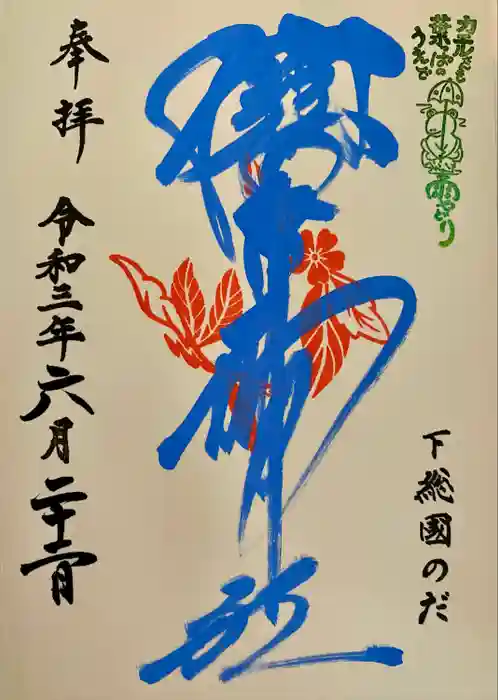 カエル
葉っぱの
うえで
雨やどり
下総國のだ
櫻木神社
奉拝
令和三年六月